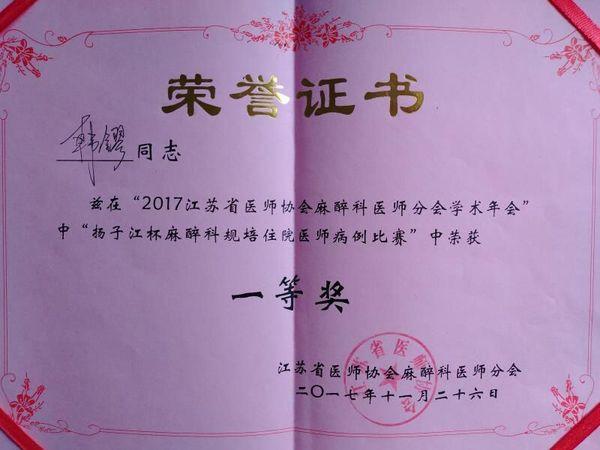 荣誉证书
韩鏐 同志
兹在“2017江苏省医师协会麻醉科医师分会学术年会”
中“扬子江杯麻醉科规培住院医师病例比赛”中荣获
一等奖
江苏省医师协会麻醉科医师分会
二〇一七年十一月二十六日